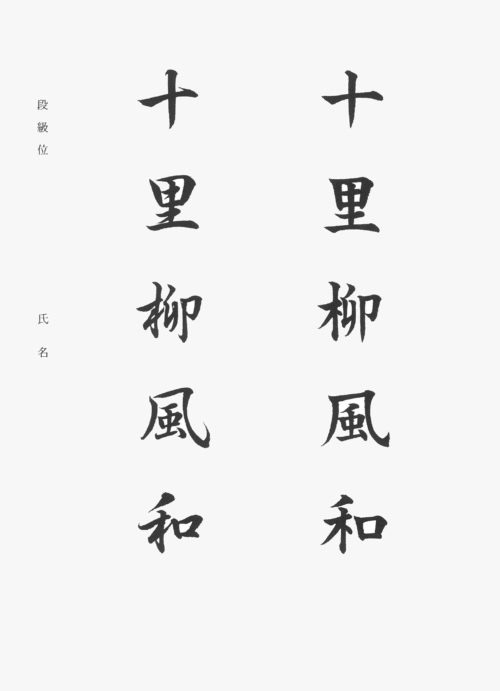 十里柳風和
十里柳風和
段級位
氏名